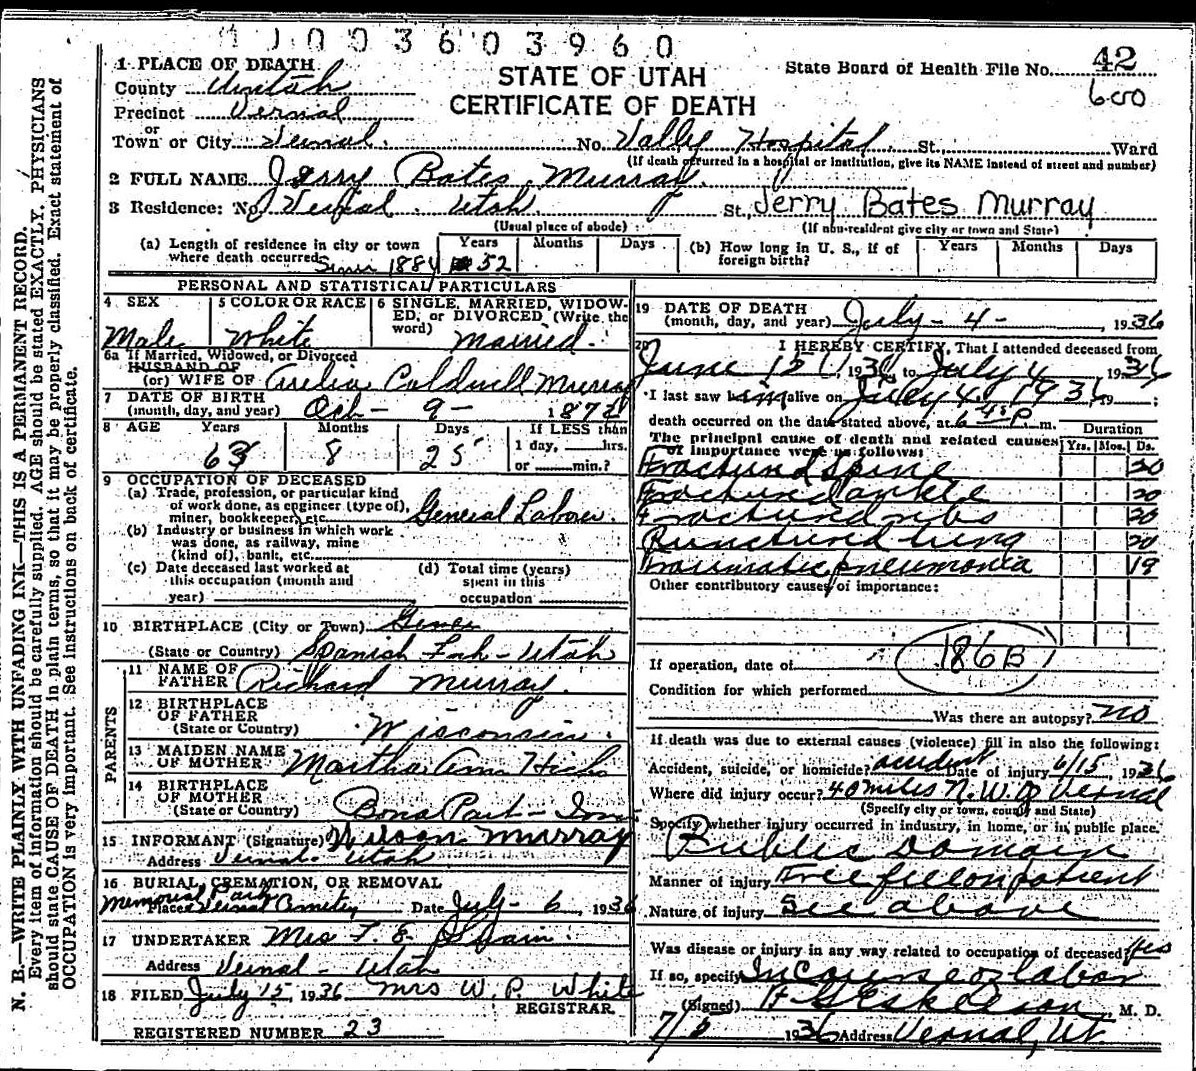 1003603960
1 PLACE OF DEATH
STATE OF UTAH
CERTIFICATE OF DEATH
State Board of Health File No. 42
600
County Uintah
Precinct Vernal
or
Town or City Vernal. No. Valley Hospital St., Ward
(If death occurred in a hospital or institution, give its NAME instead of street and number)
2 FULL NAME Jerry Bates Murray.
3 Residence: No. Vernal. Utah. St., Jerry Bates Murray
(Usual place of abode) (If non-resident give city or town and State)
(a) Length of residence in city or town where death occurred Since 1884 Years 52 Months Days
(b) How long in U. S., if of foreign birth? Years Months Days
PERSONAL AND STATISTICAL PARTICULARS
4 SEX Male
5 COLOR OR RACE White
6 SINGLE, MARRIED, WIDOWED, or DIVORCED (Write the word) Married.
6a If Married, Widowed, or Divorced
HUSBAND OF
(or) WIFE OF Caldwell Murray
7 DATE OF BIRTH
(month, day, and year) Oct- 9- 1872
8 AGE Years 63 Months 8 Days 25 If LESS than 1 day, hrs. or min.?
9 OCCUPATION OF DECEASED
(a) Trade, profession, or particular kind of work done, as engineer (type of), miner, bookkeeper, etc. General Laborer.
(b) Industry or business in which work was done, as railway, mine (kind of), bank, etc.
(c) Date deceased last worked at this occupation (month and year)
(d) Total time (years) spent in this occupation
10 BIRTHPLACE (City or Town)
(State or Country) Spanish Fork - Utah
PARENTS
11 NAME OF FATHER Richard Murray.
12 BIRTHPLACE OF FATHER
(State or Country) Wisconsin.
13 MAIDEN NAME OF MOTHER Martha Ann Hicks
14 BIRTHPLACE OF MOTHER
(State or Country) Bona Part -
15 INFORMANT (Signature) Wilson Murray
Address Vernal - Utah
16 BURIAL, CREMATION, OR REMOVAL
Memorial Park
Place Vernal Cemetery Date July - 6, 1936
17 UNDERTAKER Mrs
Address Vernal - Utah
18 FILED July 15, 1936 Mrs W. P. White
REGISTRAR.
REGISTERED NUMBER 23
19 DATE OF DEATH
(month, day, and year) July - 4 -, 1936
20 I HEREBY CERTIFY, That I attended deceased from
June 15, 1936, to July 4, 1936
I last saw him alive on July 4, 1936 19 ;
death occurred on the date stated above, at 6 45 P m.
The principal cause of death and related causes of importance were as follows: Duration Yrs. Mos. Ds.
Fractured spine 20
Fractured ankle 20
Fractured ribs 20
Punctured lung 20
Traumatic pneumonia 19
Other contributory causes of importance:
186B
If operation, date of
Condition for which performed
Was there an autopsy? no
If death was due to external causes (violence) fill in also the following:
Accident, suicide, or homicide? accident Date of injury 6/15, 1936
Where did injury occur? 40 miles N.W. of Vernal
(Specify city or town, county and State)
Specify whether injury occurred in industry, in home, or in public place.
Public Domain
Manner of injury Tree fell on patient
Nature of injury See above
Was disease or injury in any way related to occupation of deceased? Yes
If so, specify In Course of labor
(Signed) Eskelson, M. D.
7/5 1936 Address Vernal, Ut.
N. B.—WRITE PLAINLY WITH UNFADING INK—THIS IS A PERMANENT RECORD.
Every item of information should be carefully supplied. AGE should be stated EXACTLY. PHYSICIANS
should state CAUSE OF DEATH in plain terms, so that it may be properly classified. Exact statement of
OCCUPATION is very important. See instructions on back of certificate.